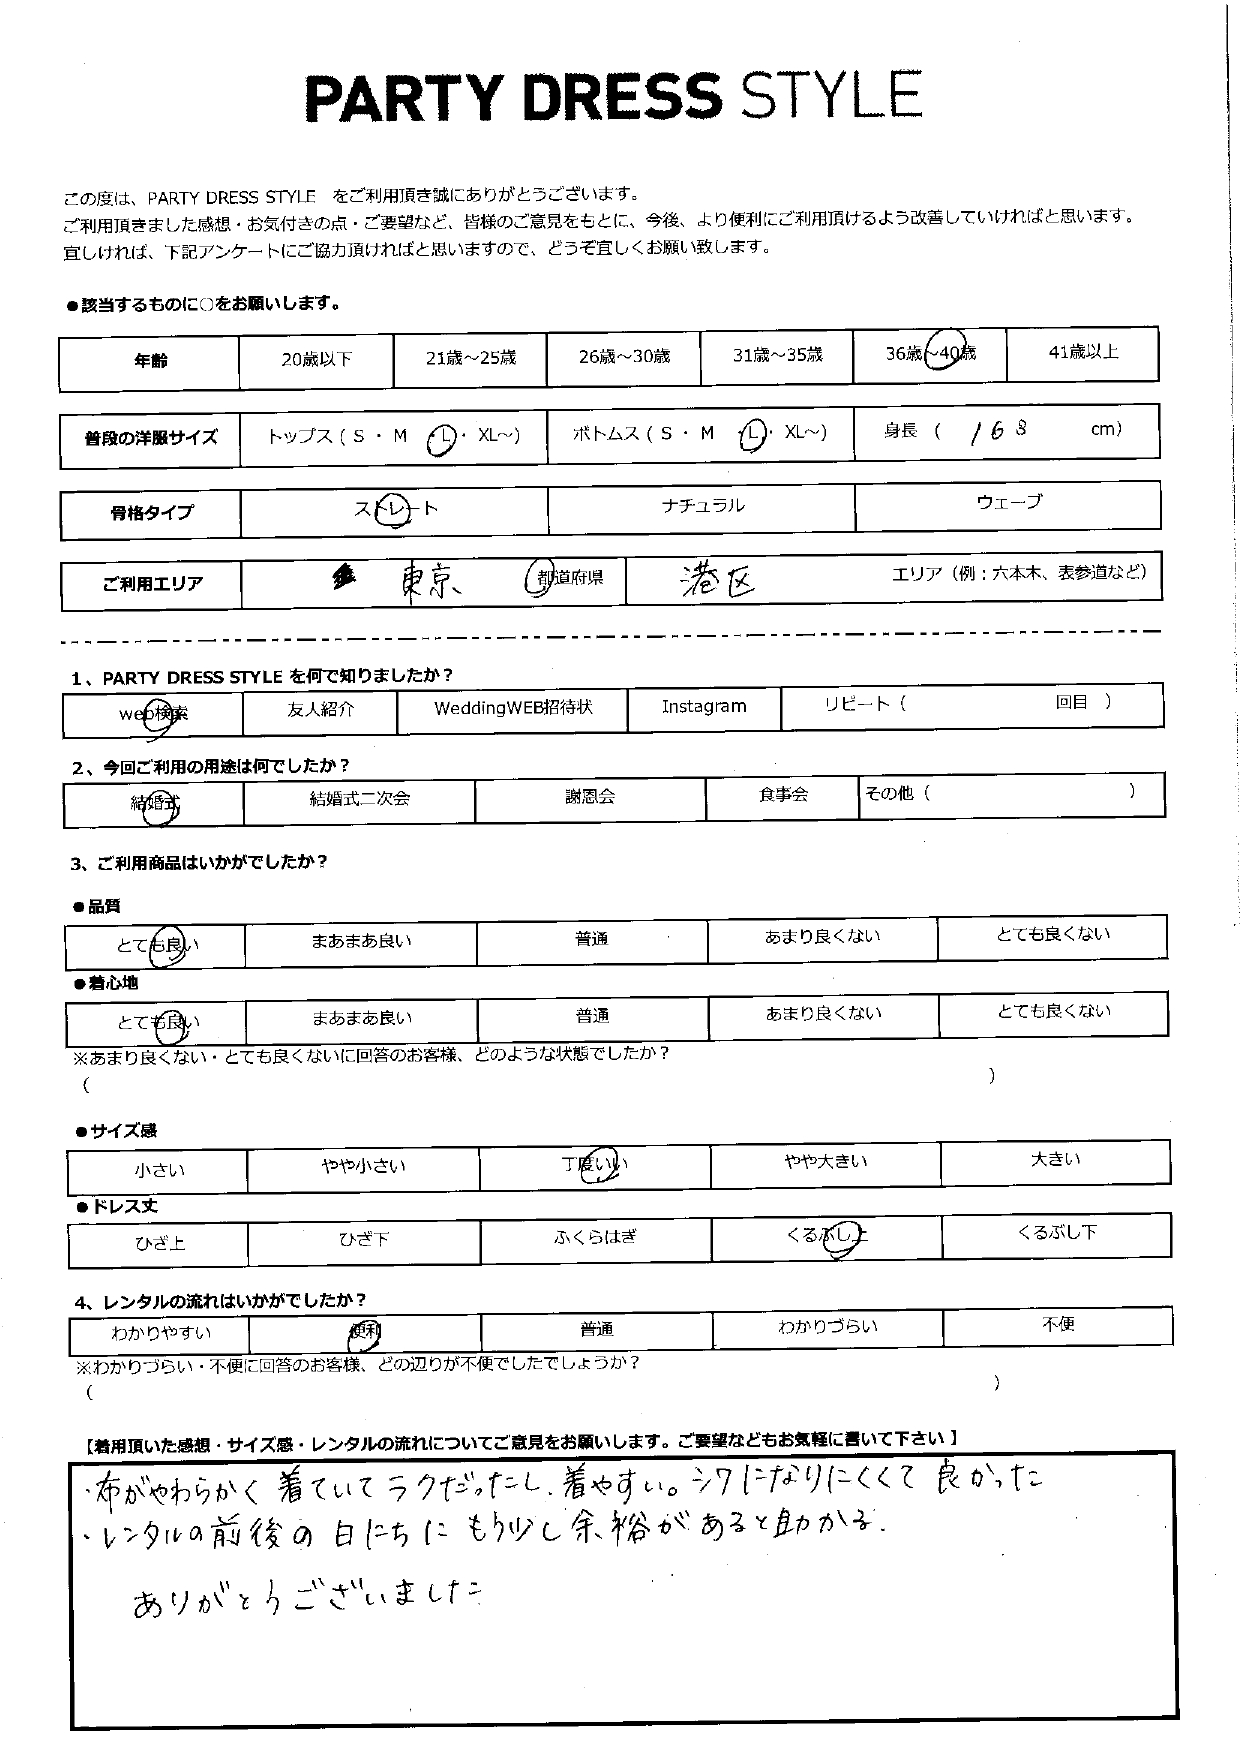 PARTY DRESS STYLE
この度は、PARTY DRESS STYLE をご利用頂き誠にありがとうございます。
ご利用頂きました感想・お気付きの点・ご要望など、皆様のご意見をもとに、今後、より便利にご利用頂けるよう改善していければと思います。
宜しければ、下記アンケートにご協力頂ければと思いますので、どうぞ宜しくお願い致します。
●該当するものに○をお願いします。
年齢 20歳以下 21歳～25歳 26歳～30歳 31歳～35歳 36歳～40歳 41歳以上
普段の洋服サイズ トップス（S ・ M ・L・ XL～） ボトムス（S ・ M ・L・ XL～） 身長 （ 168 cm）
骨格タイプ ストレート ナチュラル ウェーブ
ご利用エリア 東京 都道府県 港区 エリア（例：六本木、表参道など）
1、PARTY DRESS STYLE を何で知りましたか？
web検索 友人紹介 WeddingWEB招待状 Instagram リピート（ 回目 ）
2、今回ご利用の用途は何でしたか？
結婚式 結婚式二次会 謝恩会 食事会 その他（ ）
3、ご利用商品はいかがでしたか？
●品質
とても良い まあまあ良い 普通 あまり良くない とても良くない
●着心地
とても良い まあまあ良い 普通 あまり良くない とても良くない
※あまり良くない・とても良くないに回答のお客様、どのような状態でしたか？
（ ）
●サイズ感
小さい やや小さい 丁度いい やや大きい 大きい
●ドレス丈
ひざ上 ひざ下 ふくらはぎ くるぶし上 くるぶし下
4、レンタルの流れはいかがでしたか？
わかりやすい 便利 普通 わかりづらい 不便
※わかりづらい・不便に回答のお客様、どの辺りが不便でしたでしょうか？
（ ）
【着用頂いた感想・サイズ感・レンタルの流れについてご意見をお願いします。ご要望などもお気軽に書いて下さい】
・布がやわらかく着ていてラクだったし、着やすい。シワになりにくくて良かった
・レンタルの前後の日にちにもう少し余裕があると助かる.
ありがとうございました